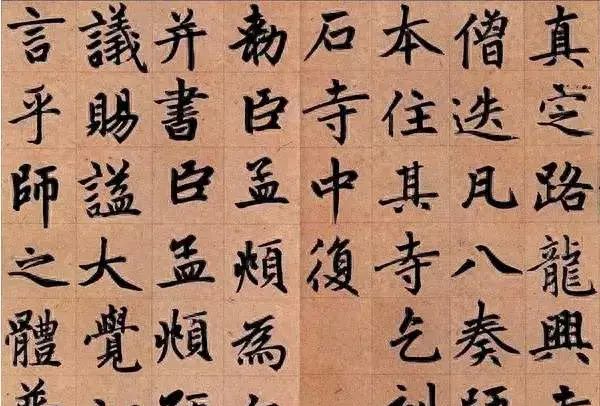 真定路龍興
僧迭凡八奏師
本住其寺乞刻
石寺中復
勅臣孟頫為
并書臣孟頫預
議賜諡大覺
言乎師之體普